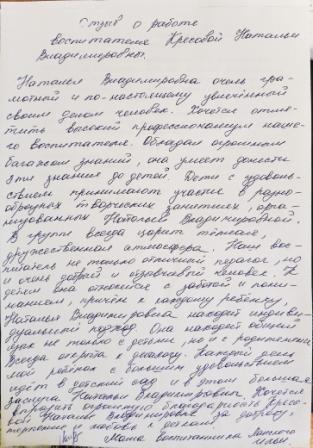 Отзыв о работе
воспитателя Кресовой Натальи
Владимировны.
Наталья Владимировна очень гра-
мотный и по-настоящему увлечённый
своим делом человек. Хочется отме-
тить высокий профессионализм наше-
го воспитателя. Обладая огромным
багажом знаний, она умеет донести
эти знания до детей. Дети с удоволь-
ствием принимают участие в разно-
образных творческих занятиях, орга-
низованных Натальей Владимировной.
В группе всегда царит тёплая,
дружественная атмосфера. Наш вос-
питатель не только отличный педагог, но
и очень добрый и отзывчивый человек. К
детям она относится с заботой и пони-
манием, причём к каждому ребёнку,
Наталья Владимировна находит индиви-
дуальный подход. Она находит общий
язык не только с детьми, но и с родителями
всегда открыта к диалогу. Каждый день
мой ребёнок с большим удовольствием
идёт в детский сад и в этом большая
заслуга Натальи Владимировны. Хочется
выразить огромную благодарность Кресо-
вой Наталье Владимировне за доброту,
терпение и любовь к деткам.
Мама воспитанника